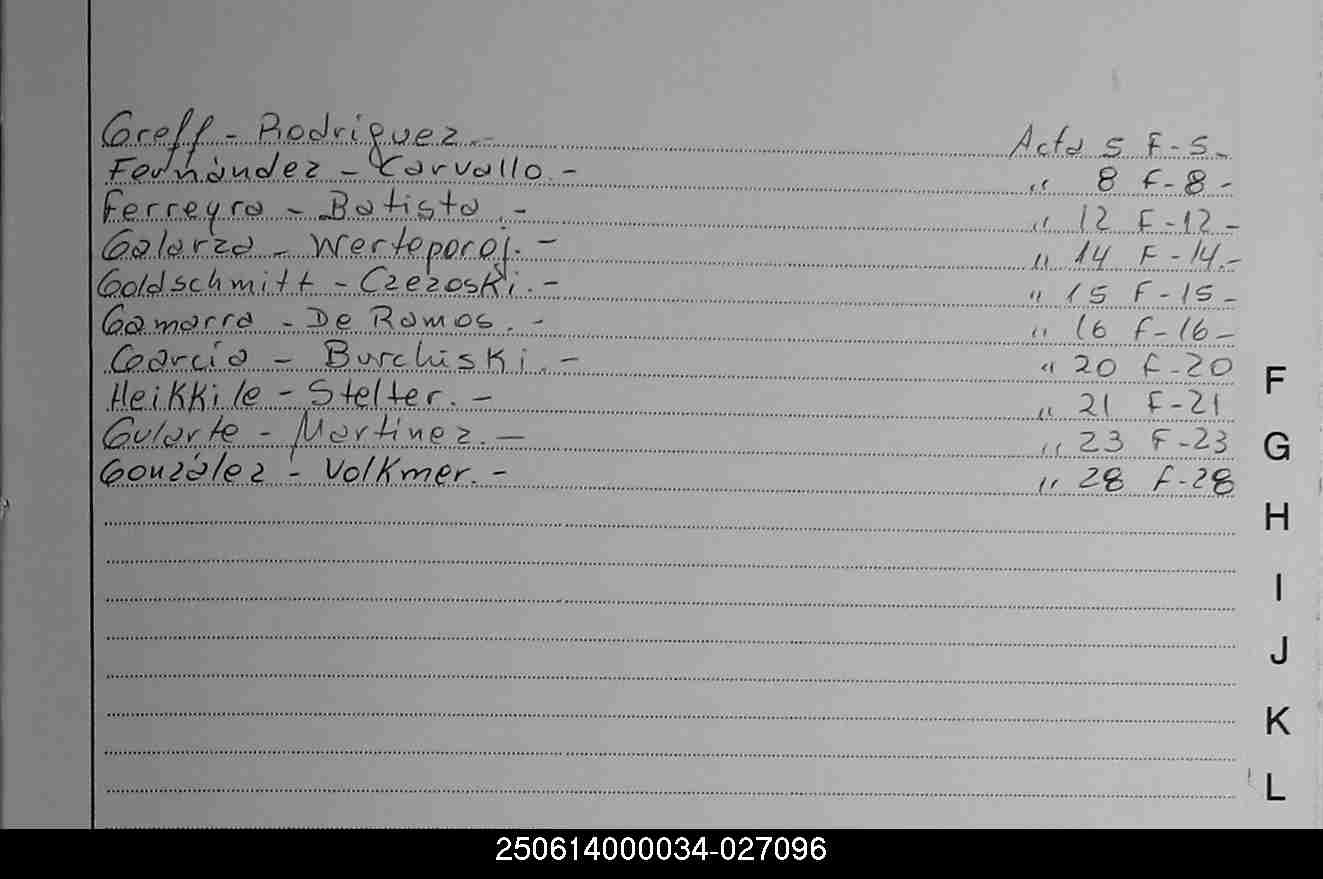 Greff - Rodríguez.- Acta 5 F-5-
Fernández - Carvallo.- " 8 F-8-
Ferreyra - Batista.- " 12 F-12-
Galarza - Werteporoj.- " 14 F-14.-
Goldschmitt - Czezoski.- " 15 F-15-
Gamarra - De Ramos.- " 16 F-16-
García - Burchiski.- " 20 F-20
Heikkile - Stelter.- " 21 F-21
Gularte - Martinez.- " 23 F-23
González - Volkmer.- " 28 F-28
F
G
H
I
J
K
L
250614000034-027096